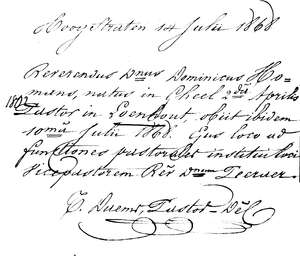 Hoogstraten 14 Julii 1868
Reverendus Dnus Dominicus Ho-
mens, natus in Gheel 2da Aprilis
1802 Pastor in Loenhout, obiit ibidem
10ma Julii 1868. Ejus loco ad
functiones pastorales institui
Vicepastorem Rev Dnum
Pastor-